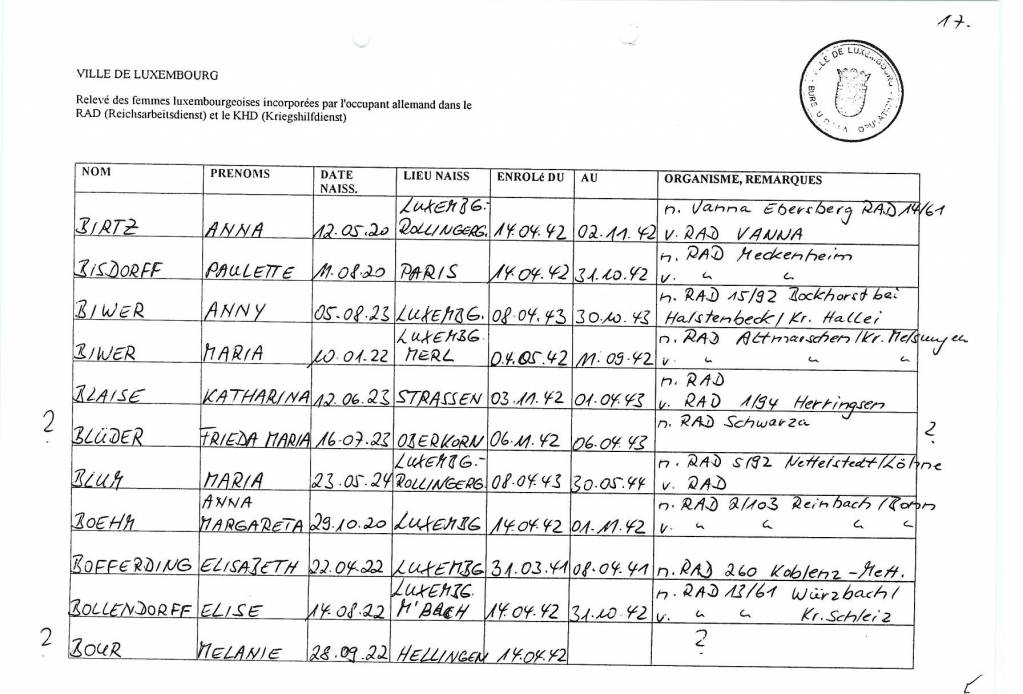 17.
VILLE DE LUXEMBOURG
Relevé des femmes luxembourgeoises incorporées par l'occupant allemand dans le
RAD (Reichsarbeitsdienst) et le KHD (Kriegshilfdienst)
VILLE DE LUXEMBOURG
NOM PRENOMS DATE NAISS. LIEU NAISS ENROLé DU AU ORGANISME, REMARQUES
BIRTZ ANNA 12.05.20 LUXEMBG.- ROLLINGERG. 14.04.42 02.11.42 n. Vanna Ebersberg RAD 14/61
v. RAD VANNA
BISDORFF PAULETTE 11.08.20 PARIS 14.04.42 31.10.42 n. RAD Meckenheim
v. " "
BIWER ANNY 05.08.23 LUXEMBG. 08.04.43 30.10.43 n. RAD 15/92 Bockhorst bei
Halstenbeck/Kr. Hallei
BIWER MARIA 10.01.22 LUXEMBG. MERL 04.05.42 11.09.42 n. RAD Altmorschen/Kr. Melsungen
v. " " "
BLAISE KATHARINA 12.06.23 STRASSEN 03.11.42 01.04.43 n. RAD
v. RAD 1/94 Herringsen
? BLÜDER FRIEDA MARIA 16.07.23 OBERKORN 06.11.42 06.04.43 n. RAD Schwarza ?
BLUM MARIA 23.05.24 LUXEMBG.- ROLLINGERG. 08.04.43 30.05.44 n. RAD 5/92 Nettelstedt/Löhne
v. RAD
BOEHM ANNA MARGARETA 29.10.20 LUXEMBG 14.04.42 01.11.42 n. RAD 2/103 Reinbach/Bonn
v. " " " "
BOFFERDING ELISABETH 22.04.22 LUXEMBG 31.03.41 08.04.41 n. RAD 260 Koblenz-Mett.
BOLLENDORFF ELISE 14.08.22 LUXEMBG. M'BACH 14.04.42 31.10.42 n. RAD 13/61 Würzbach/
v. " " Kr. Schleiz
? BOUR MELANIE 28.09.22 HELLINGEN 14.04.42 ?